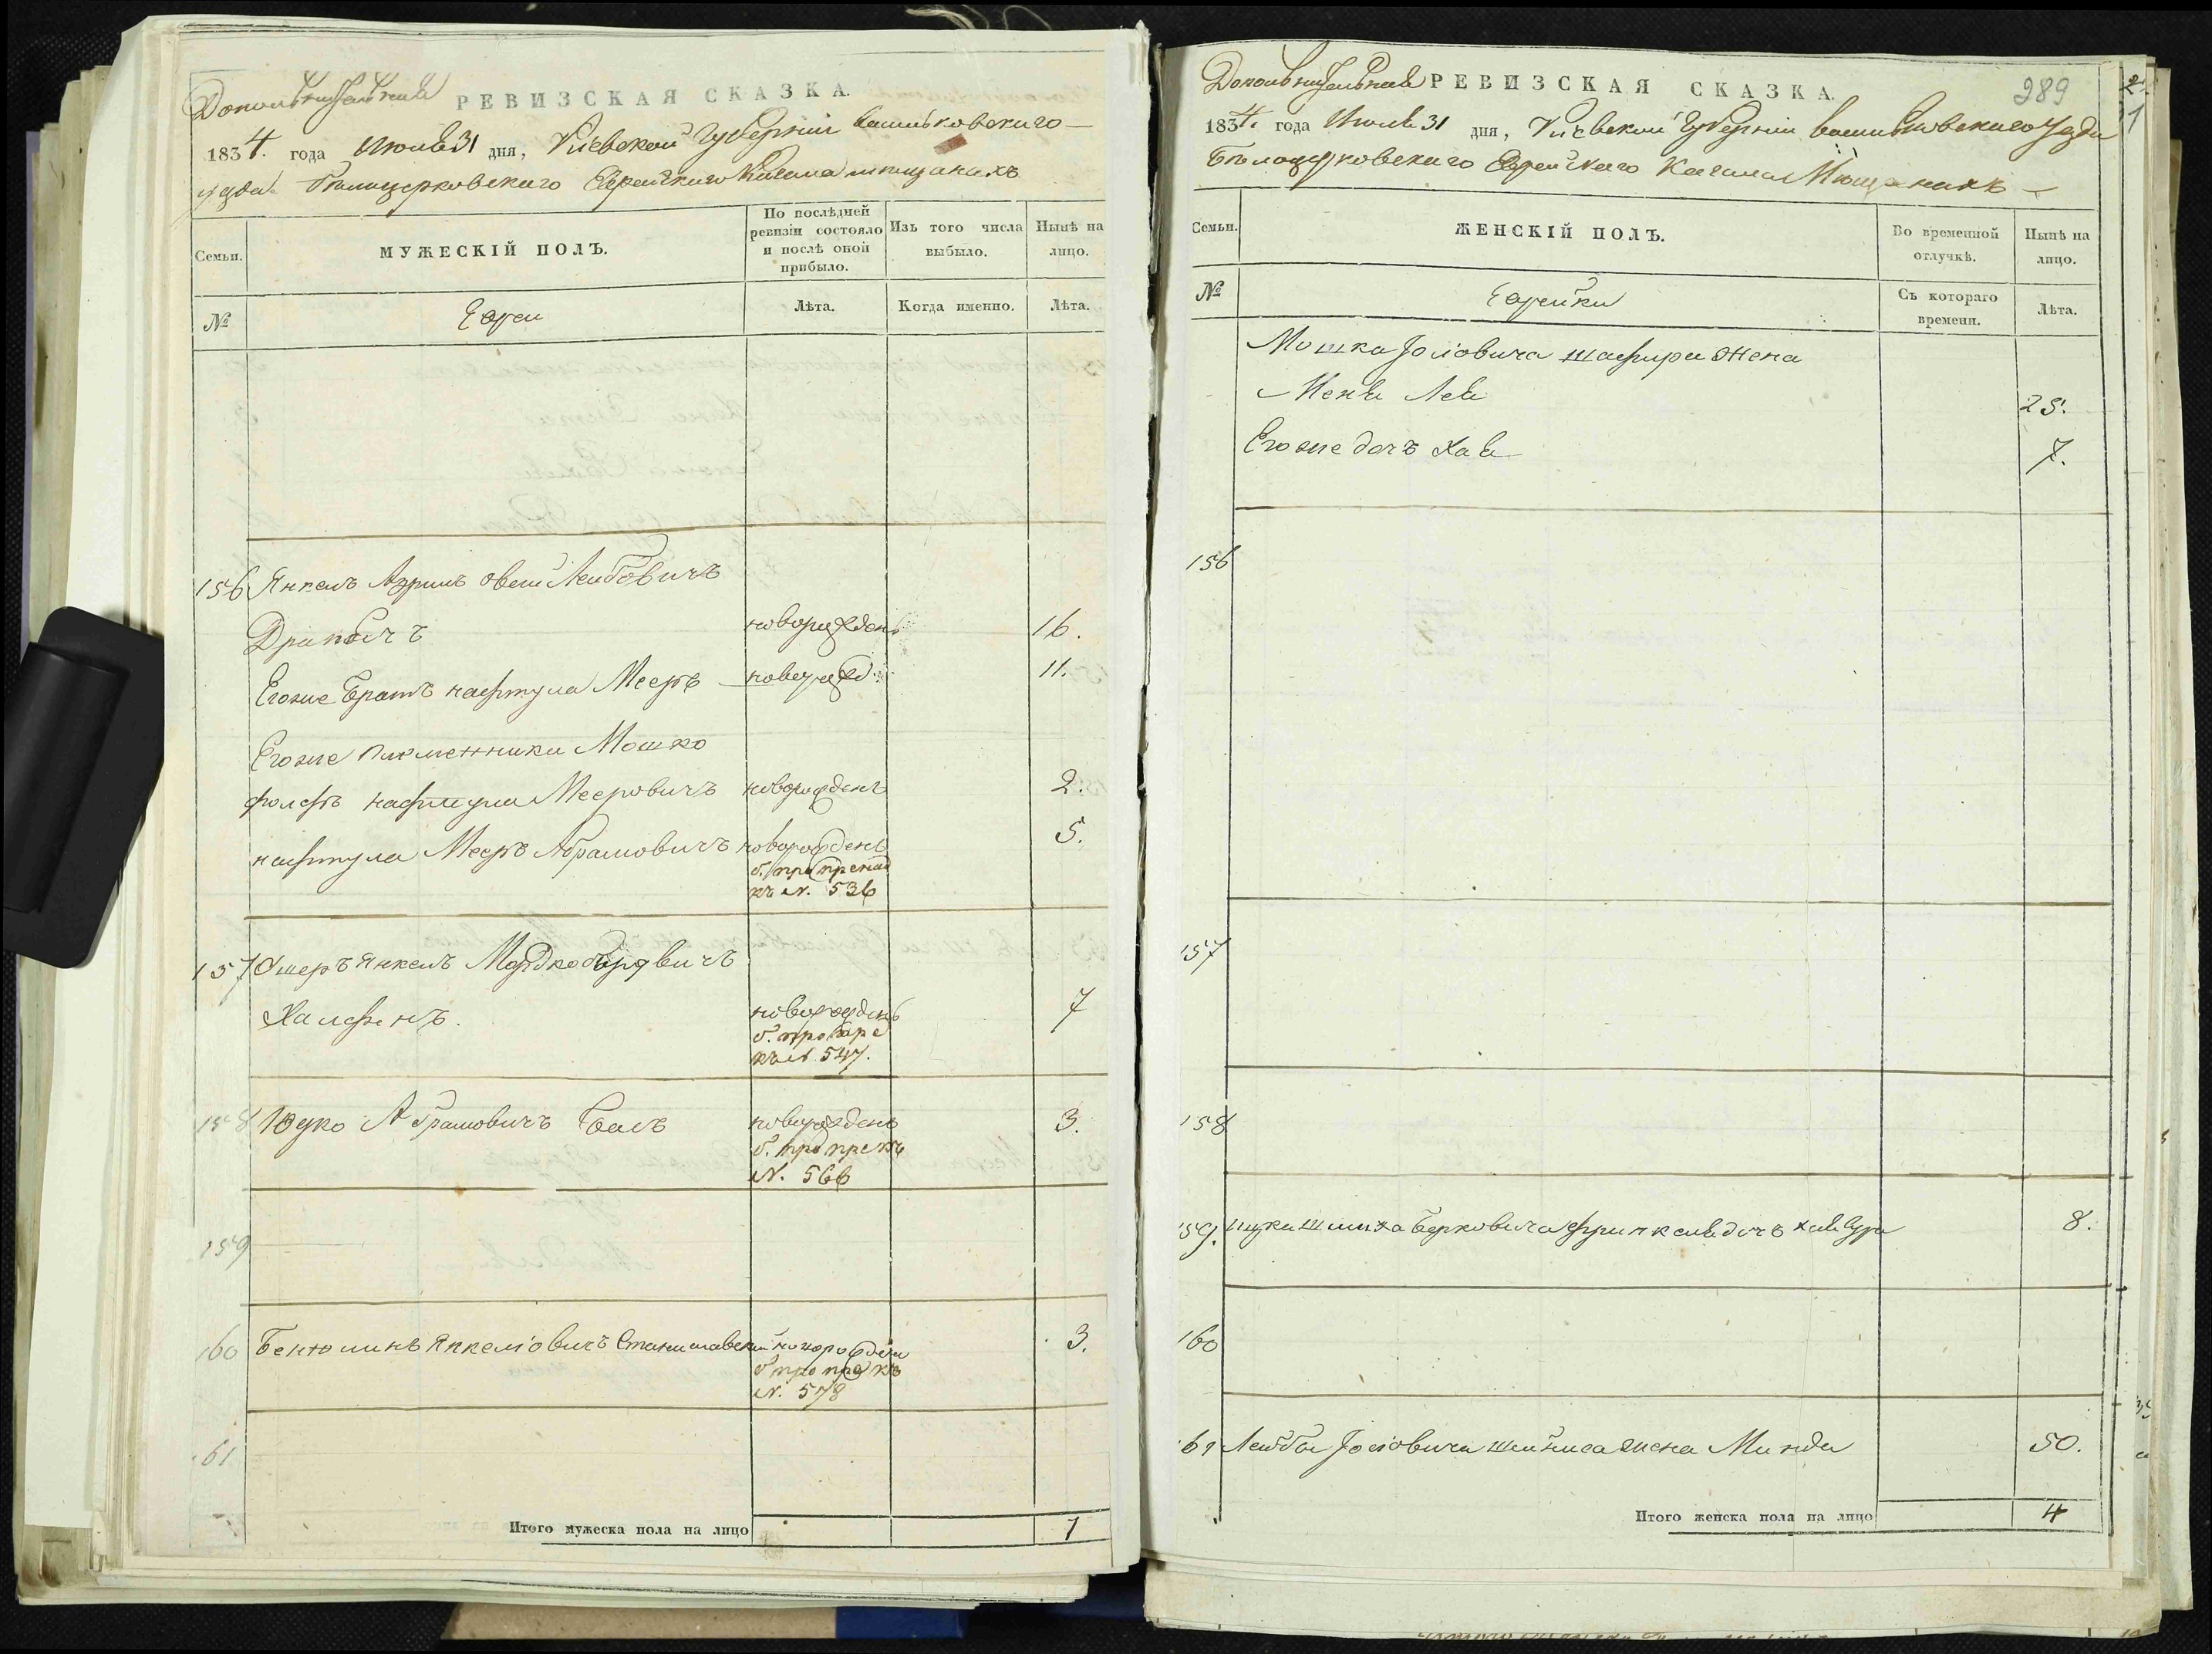 Дополнительная РЕВИЗСКАЯ СКАЗКА.
1834. года Июля 31 дня, Киевской Губерніи Васильковскаго
уезда Белоцерковскаго Еврейскаго Кагала мещанахъ
Семьи.
МУЖЕСКІЙ ПОЛЪ.
По послѣдней ревизіи состояло и послѣ оной прибыло.
Изъ того числа выбыло.
Нынѣ на лицо.
№
Евреи
Лѣта.
Когда именно.
Лѣта.
156 Янкель Азриль Овсей Лейбовичъ
новорожденъ 16.
Егоже братъ Нафтула Мееръ новорожд: 11.
Егоже племенники Мошко
Фолефъ Нафтула Мееровичъ новорожденъ 2.
Нафтула Мееръ Абрамовичъ новорожденъ 5.
къ N. 536
157 Ошеръ Янкель
Халфенъ. новорожденъ 7
къ N 547.
158 Юуко Абрамовичъ новорожденъ 3.
N. 566
159
160 Бенюминъ Янкеліовичъ Станиславскій новорожден 3.
N. 578
161
Итого мужеска пола на лицо 7
Дополнительная РЕВИЗСКАЯ СКАЗКА. 289
1834. года Июля 31 дня, Киевской Губерніи Васильковскаго уезда
Белоцерковскаго Еврейскаго Кагала Мещанахъ
Семьи.
ЖЕНСКІЙ ПОЛЪ.
Во временной отлучкѣ.
Нынѣ на лицо.
№
Еврейки
Съ котораго времени.
Лѣта.
Мошка Іосіовича Шафира жена
Меня Лея 25.
Егоже дочъ Хая 7.
156
157
158
159. Ицка Шмиха Берковича Френкеля дочъ Хая Сура 8.
160
161 Лейбы Іосіовича жена Минда 50.
Итого женска пола на лицо 4